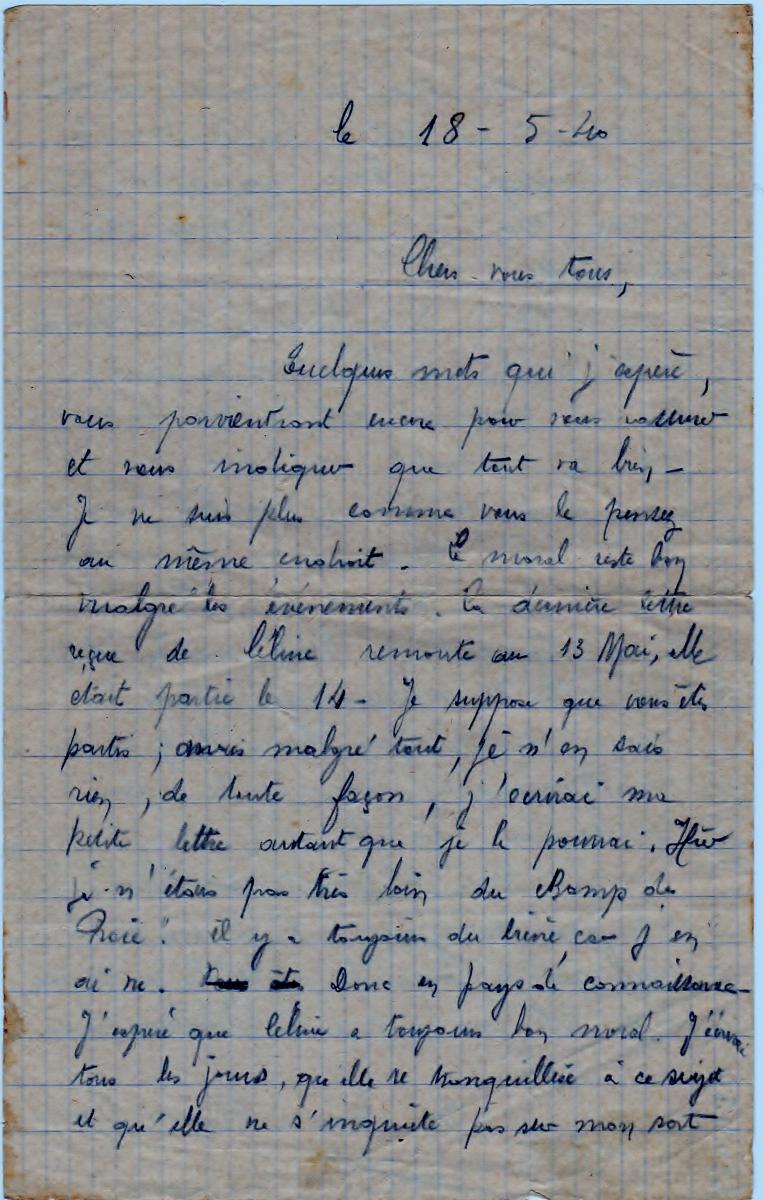 le 18 - 5 - 40
Chers vous tous,
Quelques mots qui j'espère,
vous parviendront encore pour vous rassurer
et vous indiquer que tout va bien -
Je ne suis plus comme vous le pensez
au même endroit. Le moral reste bon
malgré les événements. La dernière lettre
reçue de Céline remonte au 13 Mai, elle
était partie le 14 - Je suppose que vous êtes
partis ; mais malgré tout, je n'en sais
rien, de toute façon, j'écrirai ma
petite lettre autant que je le pourrai. Hier
je n'étais pas très loin du Champ de
il y a toujours du car j'en
ai vu. Donc en pays de connaissance -
J'espère que Céline a toujours bon moral. J'écrirai
tous les jours, qu'elle se tranquillise à ce sujet
et qu'elle ne s'inquiète pas sur mon sort